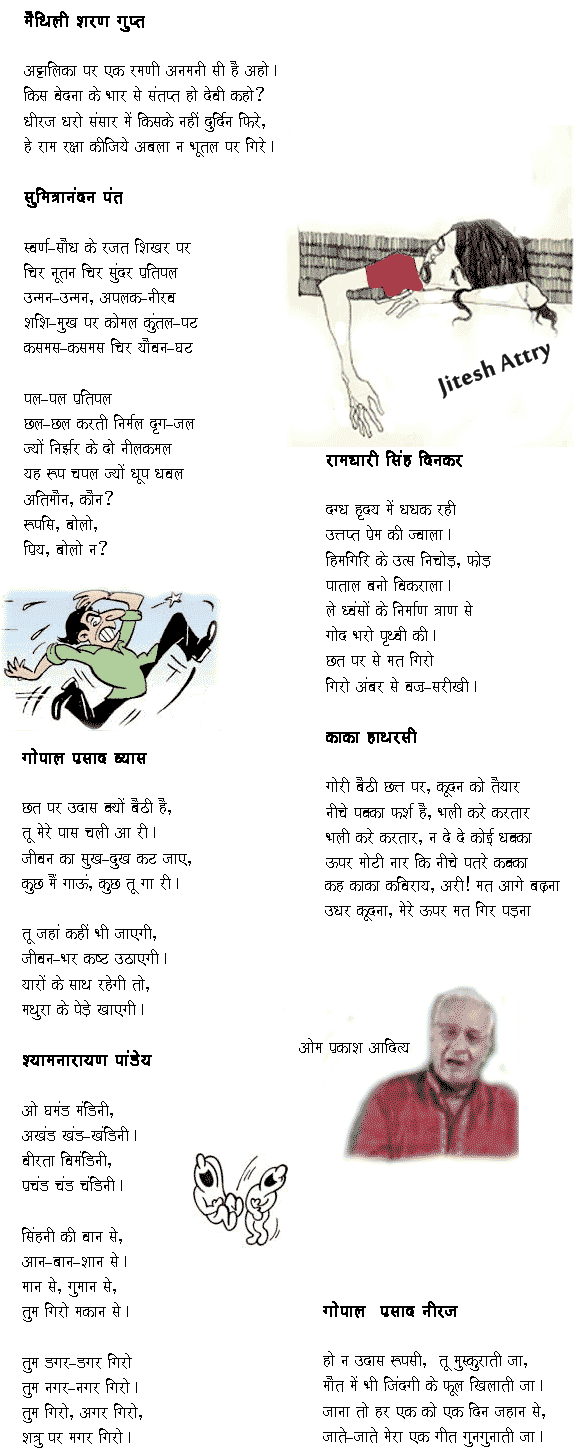 मैथिली शरण गुप्त
अट्टालिका पर एक रमणी अनमनी सी है अहो।
किस वेदना के भार से संतप्त हो देवी कहो?
धीरज धरो संसार में किसके नहीं दुर्दिन फिरे,
हे राम रक्षा कीजिये अबला न भूतल पर गिरे।
सुमित्रानंदन पंत
स्वर्ण-सौध के रजत शिखर पर
चिर नूतन चिर सुंदर प्रतिपल
उन्मन-उन्मन, अपलक-नीरव
शशि-मुख पर कोमल कुंतल-पट
कसमस-कसमस चिर यौवन-घट
पल-पल प्रतिपल
छल-छल करती निर्मल दृग-जल
ज्यों निर्झर के दो नीलकमल
यह रूप चपल ज्यों धूप धवल
अतिमौन, कौन?
रूपसि, बोलो,
प्रिय, बोलो न?
गोपाल प्रसाद व्यास
छत पर उदास क्यों बैठी है,
तू मेरे पास चली आ री।
जीवन का सुख-दुख कट जाए,
कुछ मैं गाऊं, कुछ तू गा री।
तू जहां कहीं भी जाएगी,
जीवन-भर कष्ट उठाएगी।
यारों के साथ रहेगी तो,
मथुरा के पेड़े खाएगी।
श्यामनारायण पांडेय
ओ घमंड मंडिनी,
अखंड खंड-खंडिनी।
वीरता विमंडिनी,
प्रचंड चंड चंडिनी।
सिंहनी की बान से,
आन-बान-शान से।
मान से, गुमान से,
तुम गिरो मकान से।
तुम डगर-डगर गिरो
तुम नगर-नगर गिरो।
तुम गिरो, अगर गिरो,
शत्रु पर मगर गिरो।
Jitesh Attry
रामधारी सिंह दिनकर
दग्ध हृदय में धधक रही
उत्तप्त प्रेम की ज्वाला।
हिमगिरि के उत्स निचोड़, फोड़
पाताल बनो विकराला।
ले ध्वंसों के निर्माण त्राण से
गोद भरो पृथ्वी की।
छत पर से मत गिरो
गिरो अंबर से वज्र-सरीखी।
काका हाथरसी
गोरी बैठी छत्त पर, कूदन को तैयार
नीचे पक्का फर्श है, भली करे करतार
भली करे करतार, न दे दे कोई धक्का
ऊपर मोटी नार कि नीचे पतरे कक्का
कह काका कविराय, अरी! मत आगे बढ़ना
उधर कूदना, मेरे ऊपर मत गिर पड़ना
ओम प्रकाश आदित्य
गोपाल प्रसाद नीरज
हो न उदास रूपसी, तू मुस्कुराती जा,
मौत में भी जिंदगी के फूल खिलाती जा।
जाना तो हर एक को एक दिन जहान से,
जाते-जाते मेरा एक गीत गुनगुनाती जा।